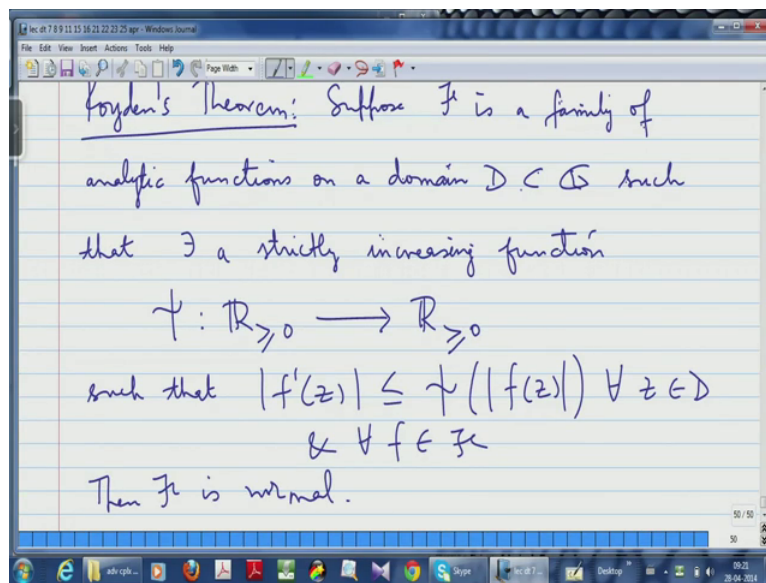 lec dt 7 8 9 11 15 16 21 22 23 25 apr - Windows Journal
File Edit View Insert Actions Tools Help
Page Width
Royden's Theorem: Suppose ℱ is a family of
analytic functions on a domain D ⊂ ℂ such
that ∃ a strictly increasing function
ψ : ℝ≥0 ⟶ ℝ≥0
such that |f'(z)| ≤ ψ(|f(z)|) ∀ z ∈ D
& ∀ f ∈ ℱ
Then ℱ is normal.
50 / 50
50
adv cplx ... Skype lec dt 7 ... Desktop » 09:21
28-04-2014